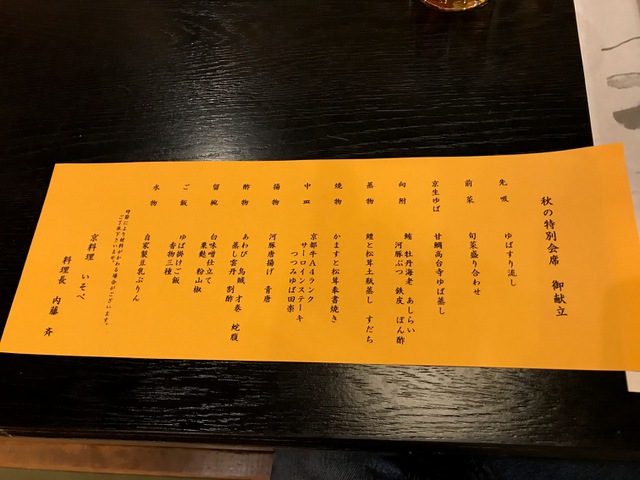 秋の特別会席　御献立
先吸　ゆばすり流し
前菜　旬菜盛り合わせ
京生ゆば　甘鯛高台寺ゆば蒸し
向附　鮪　牡丹海老　あしらい
河豚ぶつ　鉄皮　ぽん酢
蒸物　鱧と松茸土瓶蒸し　すだち
焼物　かますと松茸奉書焼き
中皿　京都牛A4ランク
サーロインステーキ
つつみゆば田楽
揚物　河豚唐揚げ　青唐
酢物　あわび　鳥賊　才巻　蛇腹
蒸し雲丹　割酢
留椀　白味噌仕立て
粟麩　粉山椒
ご飯　ゆば掛けご飯
香物三種
水物　自家製豆乳ぷりん
時節により材料がかわる場合がございます。
ご了承下さいませ。
京料理　いそべ
料理長　内藤　斉